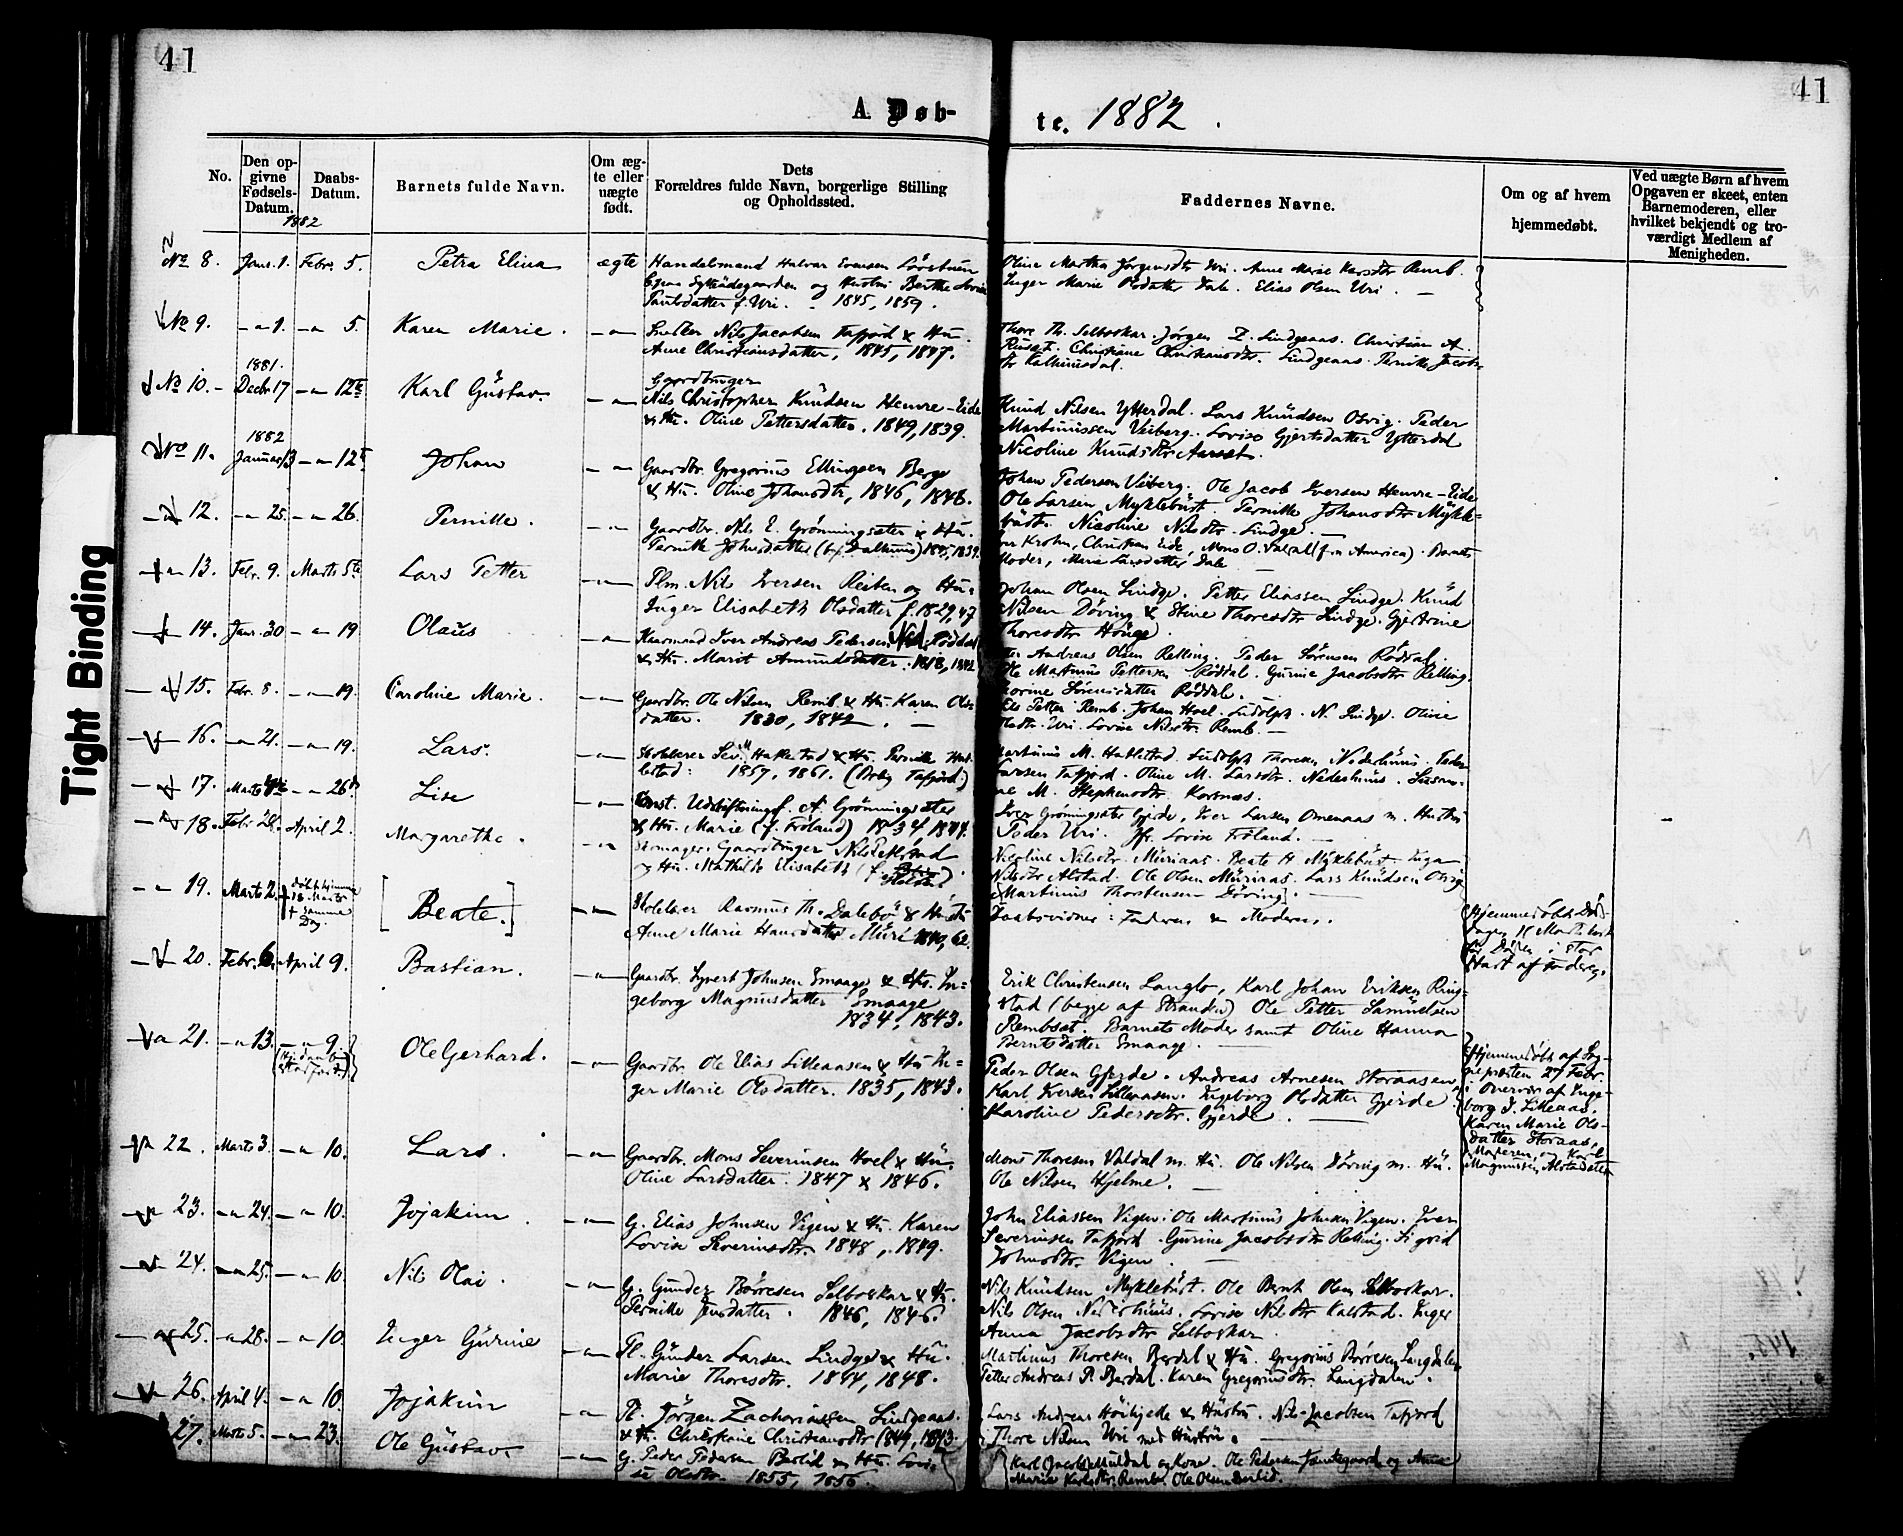 41
41
A. Døb-
te. 1882.
No.
Den op-
givne
Fødsels-
Datum.
1882
Daabs-
Datum.
Barnets fulde Navn.
Om æg-
te eller
uægte
født.
Dets
Forældres fulde Navn, borgerlige Stilling
og Opholdssted.
Faddernes Navne.
Om og af hvem
hjemmedøbt.
Ved uægte Børn af hvem
Opgaven er skeet, enten
Barnemoderen, eller
hvilket bekjendt og tro-
værdigt Medlem af
Menigheden.
No 8. Janr. 1. Febr. 5. Petra Elina ægte Handelsmand Halvar Evensen
og Hustru Berthe Lovise
Paulsdatter f. Uri. 1845, 1859.
Oline Martha Jørgensdtr Uri. Anne Marie Remb.
Inger Marie Olsdatter Dale. Elias Olsen Uri. —
No 9. - " - 1. - " - 5. Karen Marie. - " - Nils Jacobsen Tafjord & Hu.
Anne Christiansdatter, 1845, 1847.
Thore Th. Selboskar. Jørgen Z. Lindgeaas. Christian A.
Christiane Christiansdtr. Lindgeaas. Pernille Jacobs-
1881.
No 10. - Decbr 17 - " - 12te Karl Gustav. - " - Gaardbruger
Nils Christopher Knudsen Henvre-Eide
& Hu. Oline Pettersdatter. 1849, 1839.
Knud Nilsen Ytterdal. Lars Knudsen Overig. Peder
Martinussen Veiberg. Lovise Gjertsdatter Ytterdal
Nicoline Knudsdtr Aarset.
1882
No 11. Januar 13 - " - 12te Johan - " - Gaardbr. Gregorius Ellingsen Berge
& Hu. Oline Johansdtr, 1846, 1848.
Johan Pedersen Veiberg. Ole Jacob Iversen Henvre-Eide
Ole Larsen Myklebust. Pernille Johansdtr Mykle-
bust. Nicoline Nilsdtr. Lindge.
- " - 12. - " - 25. - " - 26. Pernille. - " - Gaardbr. Nils E. Grønningsæter & Hu.
Pernille Johnsdatter 1839.
Krohn, Christian Eide, Mons O. Valdal (fra America). Barnets
Moder, Marie Larsdatter Dale
- " - 13. Febr. 9. Marts 5te Lars Petter - " - Plm. Nils Iversen Reiten og Hu.
Inger Elisabeth Olsdatter f. 1829, 47
Johan Olsen Lindge. Petter Eliassen Lindge. Knud
Nilsen Døving & Stine Thoresdtr Lindge. Gjertrine
Thoresdtr Hauge.
- " - 14. Janr. 30 - " - 19 Olaus - " - Kaarmand Iver Andreas Pedersen Røddal
& Hu. Marit Amundsdatter. 1818, 1842
Andreas Olsen Relling. Peder Sørensen Røddal.
Ole Martinus Pettersen Røddal. Gurine Jacobsdtr Relling.
Sørensdatter Røddal. —
- " - 15. Febr. 8. - " - 19. Caroline Marie. - " - Gaardbr. Ole Nilsen Remb. & Hu. Karen Ols-
datter. 1830, 1842. —
Petter Remb. Johan Hoel. Ludolph. N. Lindge. Oline
Uri. Lovise Nilsdtr. Remb. —
- " - 16. - " - 21. - " - 19. Lars. - " - Skolelærer Hatlestad & Hu. Pernille Hat-
lestad: 1857, 1861. (Tafjord)
Martinus M. Hatlestad. Ludolph Thoresen Nederhuus. Peder
Larsen Tafjord. Oline M. Larsdtr. Nederhuus. Susan-
ne M. Stephensdtr. Korsnæs.
- " - 17. Marts - " - 26de Lise - " - Const. Udskiftningsf. A. Grønningsæter
& Hu. Marie (f. Frøland) 1834 1844.
Iver Grønningsæter Gjerde, Iver Larsen Omenaas m. Hustru
Peder Uri. Jfr. Lovise Frøland. —
- " - 18. Febr. 28. April 2. Margarethe. - " - Gaardbruger Nils
og Hu. Mathilde Elisabeth
Nicoline Nilsdtr. Muriaas. Beate H Myklebust. Inga
Nilsdtr Alstad. Ole Olsen Muriaas. Lars Knudsen Overig
Martinus Thorstensen Døving. —
- " - 19. Marts 2. døbt hjemme
18 Marts
† samme
Dag. [Beate.] - " - Skolelær Rasmus Th. Dalebø & Hustru
Anne Marie Hansdatter Muri 1840, 62.
Daabsvidner: Faderen & Moderen.
Hjemmedøbt
af Faderen.
- " - 20. Febr. 6. April 9. Bastian. - " - Gaardbr. Syvert Johnsen Smaage & Hu. In-
geborg Magnusdatter Smaage
1834, 1843.
Erik Christensen Langlo, Karl Johan Eriksen Ring-
stad (begge af Stranden) Ole Petter Samuelsen
Rembset. Barnets Moder samt Oline Hanna
Berntsdatter Smaage. —
- " - 21. - " - 13. - " - 9. Ole Gerhard. - " - Gaardbr. Ole Elias Lilleaasen & Hu In-
ger Marie Olsdatter. 1835, 1843.
Peder Olsen Gjerde. Andreas Arnesen Storaasen
Karl Iversen Lilleaasen. Ingeborg Olsdatter Gjerde
Karoline Pedersdtr. Gjerde. —
Hjemmedøbt af Sog-
nepræsten 27 Febr.
i Overvær af Inge-
borg I. Lilleaas.
Karen Marie Ols-
datter Storaas,
Moderen, og Karl
Magnussen Alstadsæter
- " - 22. Marts 3. - " - 10. Lars. - " - Gaardbr. Mons Severinsen Hoel & Hu.
Oline Larsdatter. 1847 & 1846.
Mons Thoresen Valdal m. Hu. Ole Nilsen Døving m. Hu.
Ole Nilsen Hjelme. —
- " - 23. - " - 24. - " - 10. Jojakim. - " - G. Elias Johnsen Vigen & Hu. Karen
Lovise Severinsdtr. 1848, 1849.
John Eliassen Vigen. Ole Martinus Johnsen Vigen. Iver
Severinsen Tafjord. Gurine Jacobsdtr Relling. Sigrid
Johnsdtr. Vigen. —
- " - 24. - " - 25. - " - 10. Nils Olai. - " - G. Gunder Børresen Selboskar & Hu.
Pernille Jensdatter. 1846, 1846.
Nils Knudsen Myklebust. Ole Bernt Olsen Selboskar.
Nils Olsen Nederhuus. Lovise Nilsdtr Kalstad. Inger
Anna Jacobsdtr Selboskar.
- " - 25. - " - 28. - " - 10. Inger Gurine - " - Pl. Gunder Larsen Lindge & Hu.
Marie Thoresdtr. 1844, 1848.
Martinus Thoresen Berdal & Hu. Gregorius Børresen Langdalen
Petter Andreas P. Berdal. Karen Gregoriusdtr. Langdalen.
- " - 26. April 4. - " - 10. Jojakim - " - Pl. Jørgen Zachariassen Lindgeaas.
& Hu. Christiane Christiansdtr (1849, 1843.
Lars Andreas Høihjelle & Hustru. Nils Jacobsen Tafjord
Thore Nilsen Uri med Hustru.
27. Marts 5. - " - 23. Ole Gustav. - " - G. Peder Pedersen Berlid & Hu. Lovi-
se Olsdtr. 1855, 1856.
Karl (Jacob) Muldal og Kone. Ole Pedersen og Anne
Marie Karlsdtr. Remb. Ole Olsen Berlid.
Tight Binding